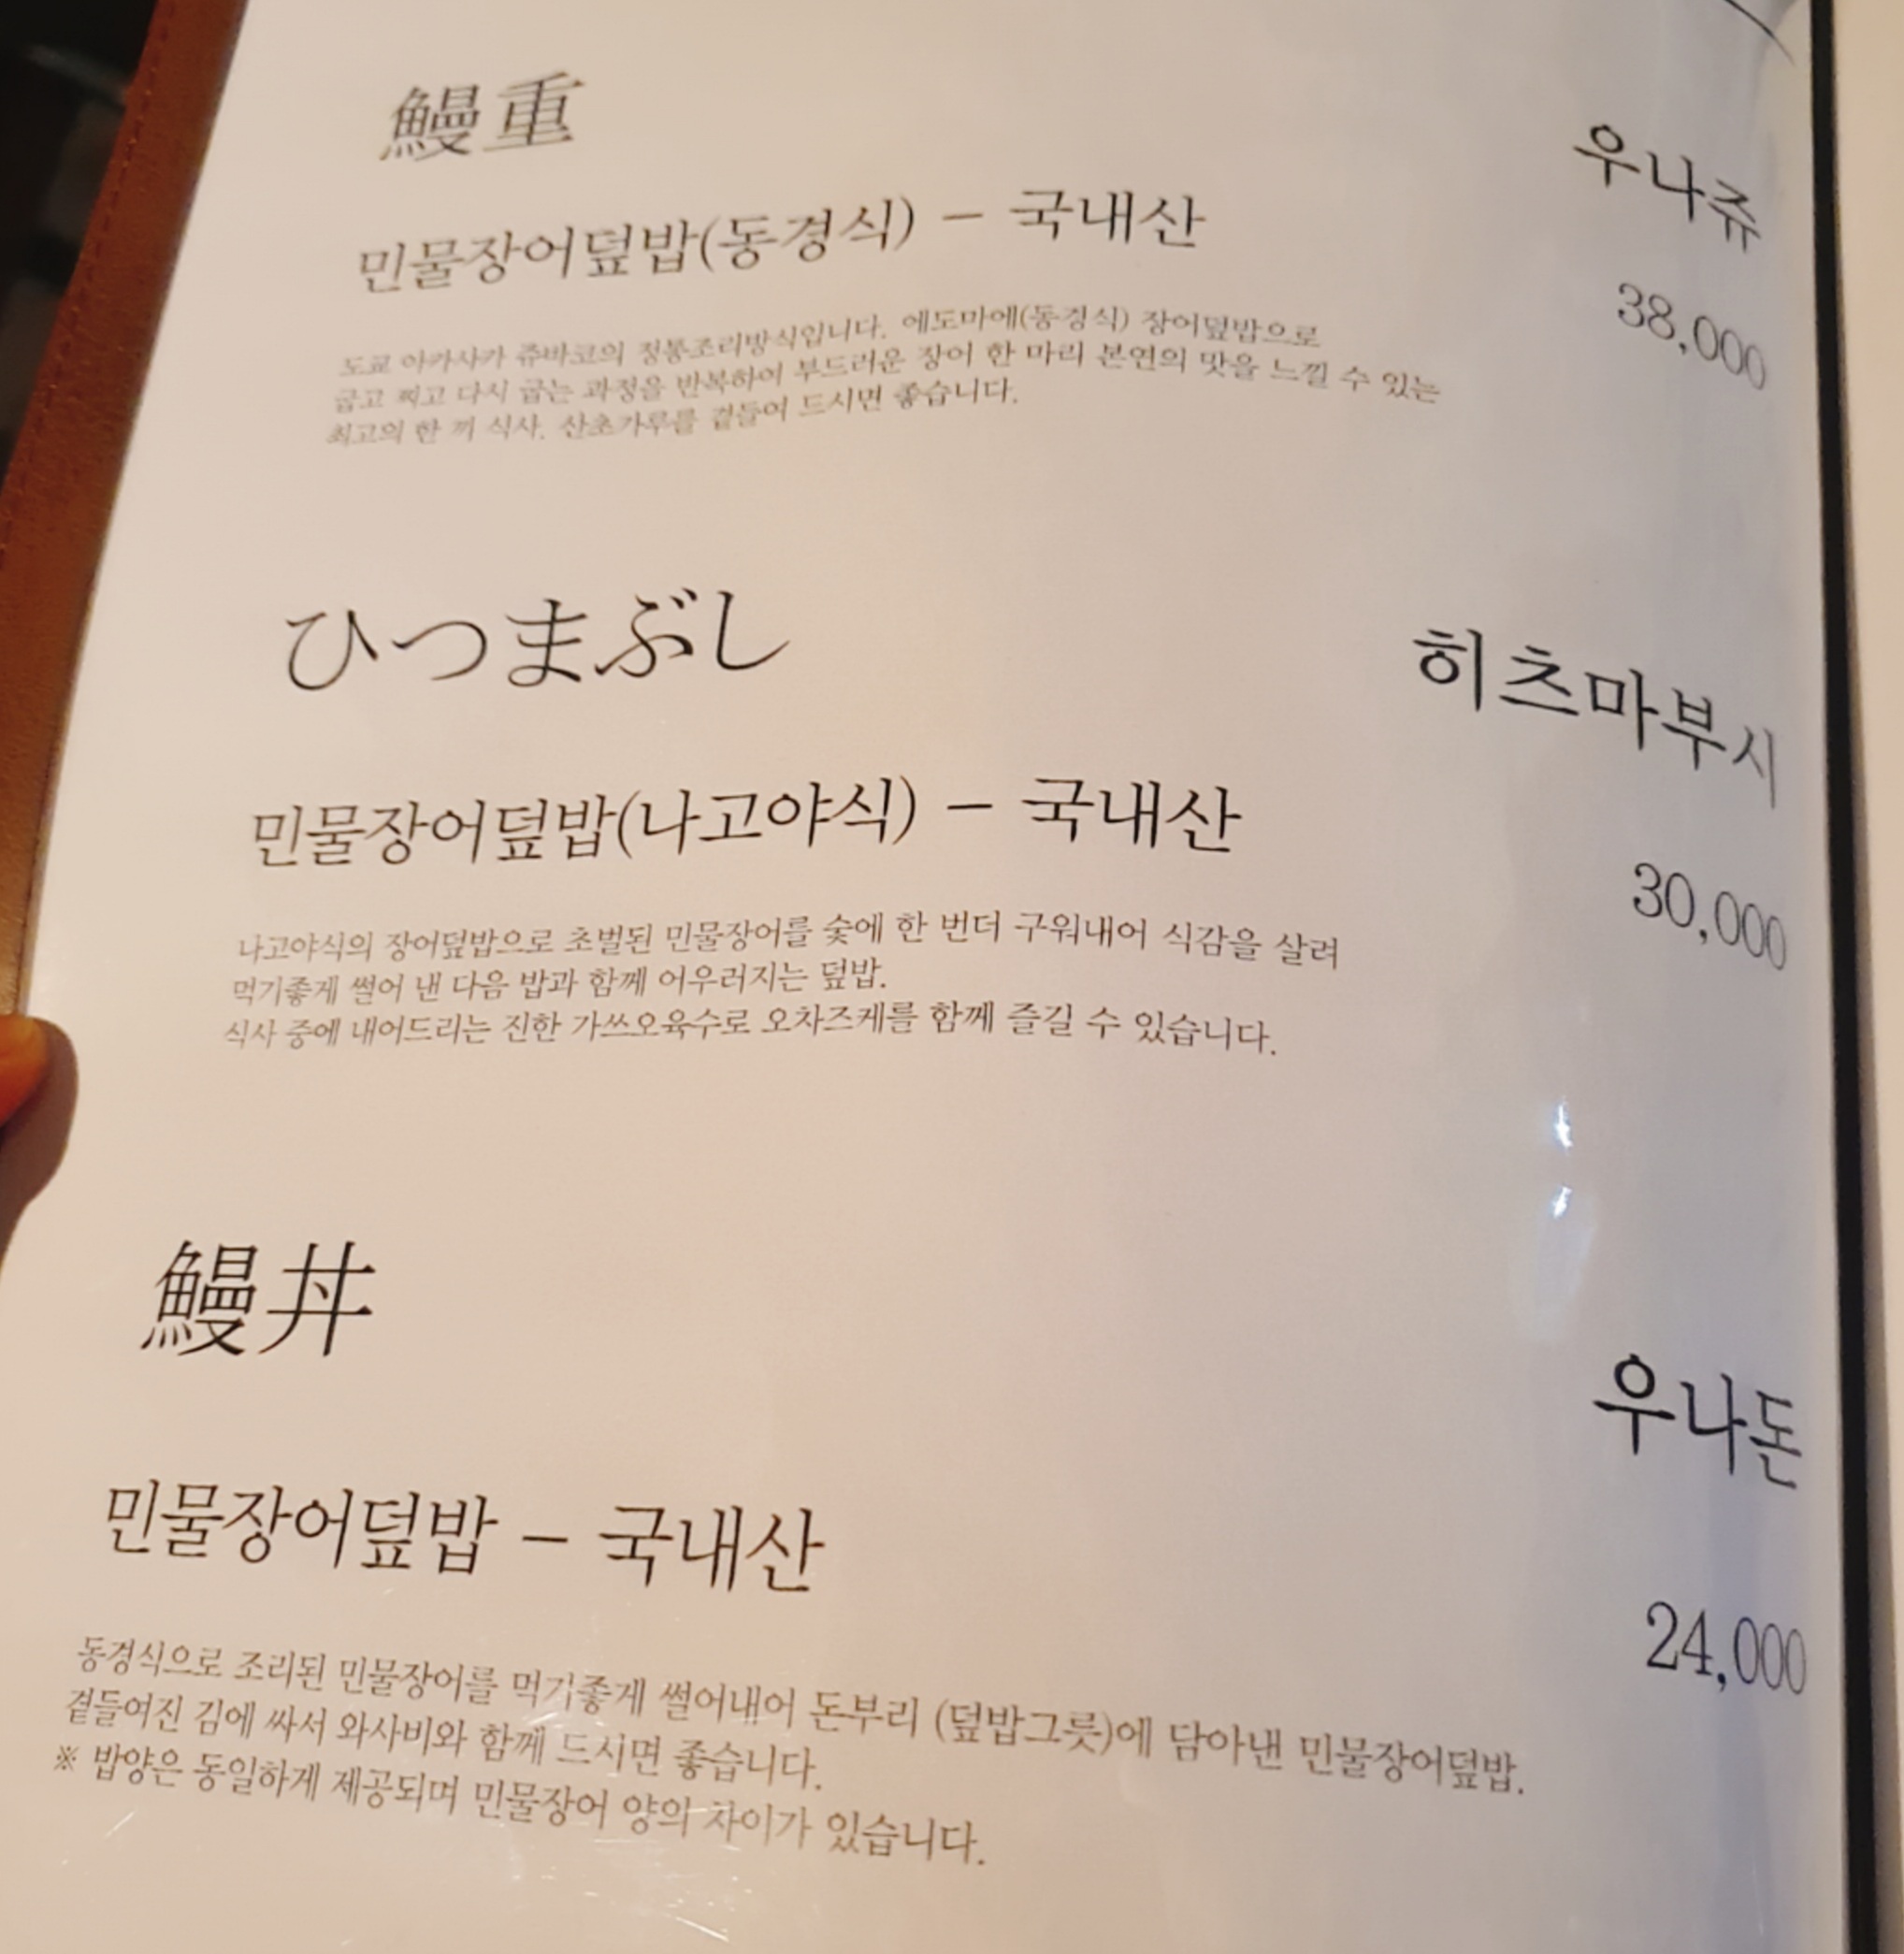 鰻重
우나쥬
민물장어덮밥(동경식) - 국내산
38,000
도쿄 아카사카 쥬바코의 정통조리방식입니다. 에도마에(동경식) 장어덮밥으로
굽고 찌고 다시 굽는 과정을 반복하여 부드러운 장어 한 마리 본연의 맛을 느낄 수 있는
최고의 한 끼 식사. 산초가루를 곁들여 드시면 좋습니다.
ひつまぶし
히츠마부시
민물장어덮밥(나고야식) - 국내산
30,000
나고야식의 장어덮밥으로 초벌된 민물장어를 숯에 한 번더 구워내어 식감을 살려
먹기좋게 썰어 낸 다음 밥과 함께 어우러지는 덮밥.
식사 중에 내어드리는 진한 가쓰오육수로 오차즈케를 함께 즐길 수 있습니다.
鰻丼
우나돈
민물장어덮밥 - 국내산
24,000
동경식으로 조리된 민물장어를 먹기좋게 썰어내어 돈부리 (덮밥그릇)에 담아낸 민물장어덮밥.
곁들여진 김에 싸서 와사비와 함께 드시면 좋습니다.
※ 밥양은 동일하게 제공되며 민물장어 양의 차이가 있습니다.